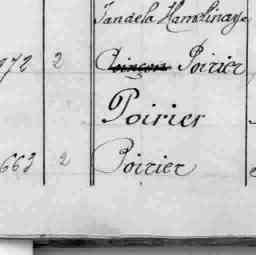 Tandela Hamelinaye
972 2 Poinçon Poirier
Poirier
663 2 Poirier